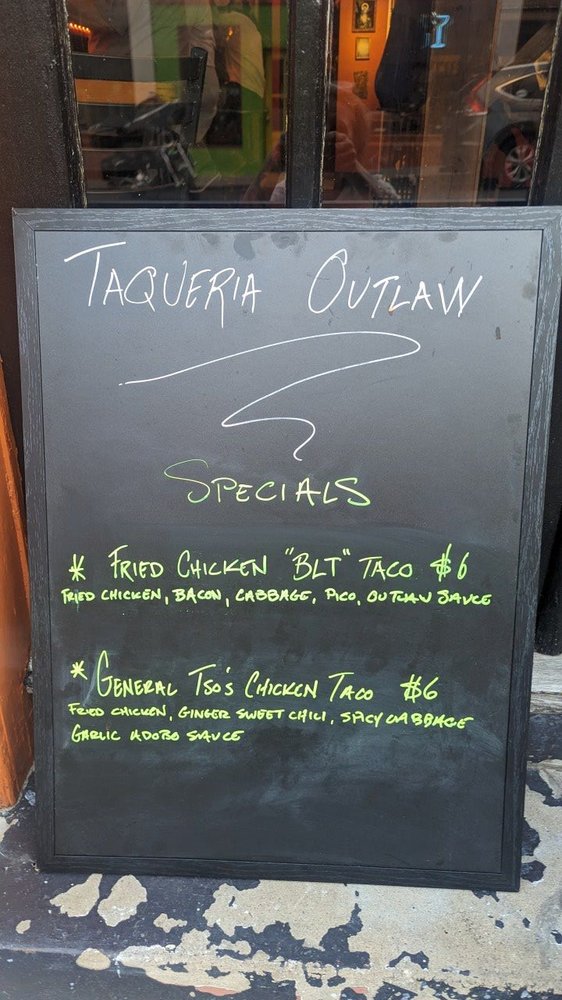 TAQUERIA OUTLAW
SPECIALS
* FRIED CHICKEN "BLT" TACO $6
FRIED CHICKEN, BACON, CABBAGE, PICO, OUTLAW SAUCE
* GENERAL TSO'S CHICKEN TACO $6
FRIED CHICKEN, GINGER SWEET CHILI, SPICY CABBAGE
GARLIC ADOBO SAUCE